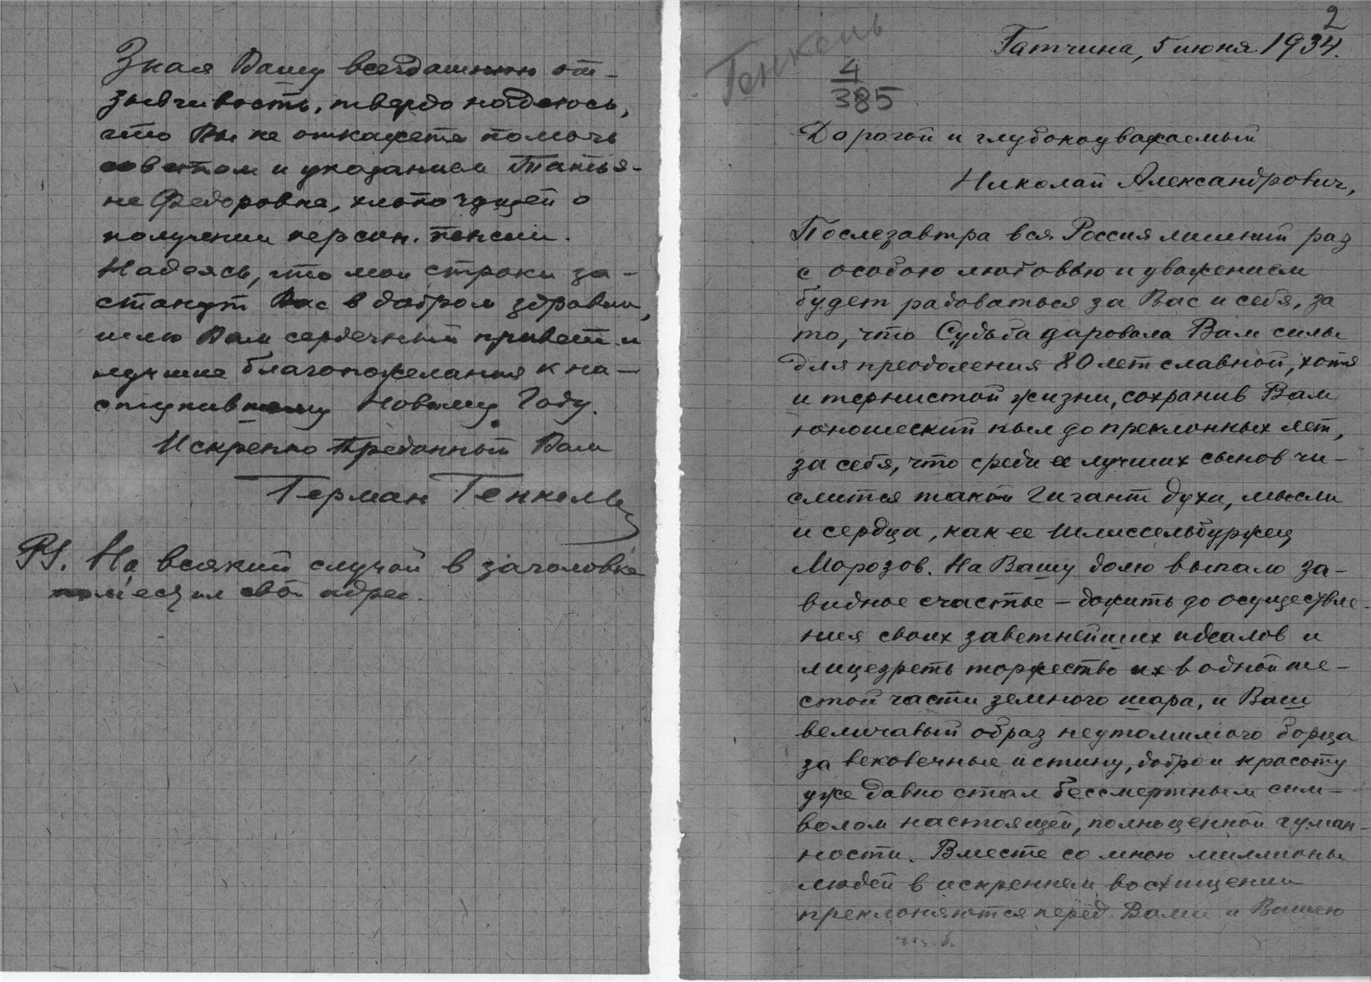 Зная Вашу всегдашнюю от-
зывчивость, твердо надеюсь,
что Вы не откажете помочь
советом и указанием Татья-
не Федоровне, хлопочущей о
получении персон. пенсии.
Надеясь, что мои строки за-
станут Вас в добром здравии,
шлю Вам сердечный привет и
лучшие благопожелания к на-
ступившему Новому Году.
Искренно преданный Вам
Герман Генкель
PS. На всякий случай в заголовке
поместил свой адрес.
2
Генкель
Гатчина, 5 июня 1934.
4
385
Дорогой и глубокоуважаемый
Николай Александрович,
Послезавтра вся Россия лишний раз
с особою любовью и уважением
будет радоваться за Вас и себя, за
то, что Судьба даровала Вам силы
для преодоления 80 лет славной, хотя
и тернистой жизни, сохранив Вам
юношеский пыл до преклонных лет,
за себя, что среди ее лучших сынов чи-
слится такой гигант духа, мысли
и сердца, как ее Шлиссельбуржец
Морозов. На Вашу долю выпало за-
видное счастье – дожить до осуществле-
ния своих заветнейших идеалов и
лицезреть торжество их в одной ше-
стой части земного шара, и Ваш
величавый образ неутомимого борца
за вековечные истину, добро и красоту
уже давно стал бессмертным сим-
волом настоящей, полноценной гуман-
ности. Вместе со мною миллионы
людей в искреннем восхищении
преклоняются перед Вами и Вашею